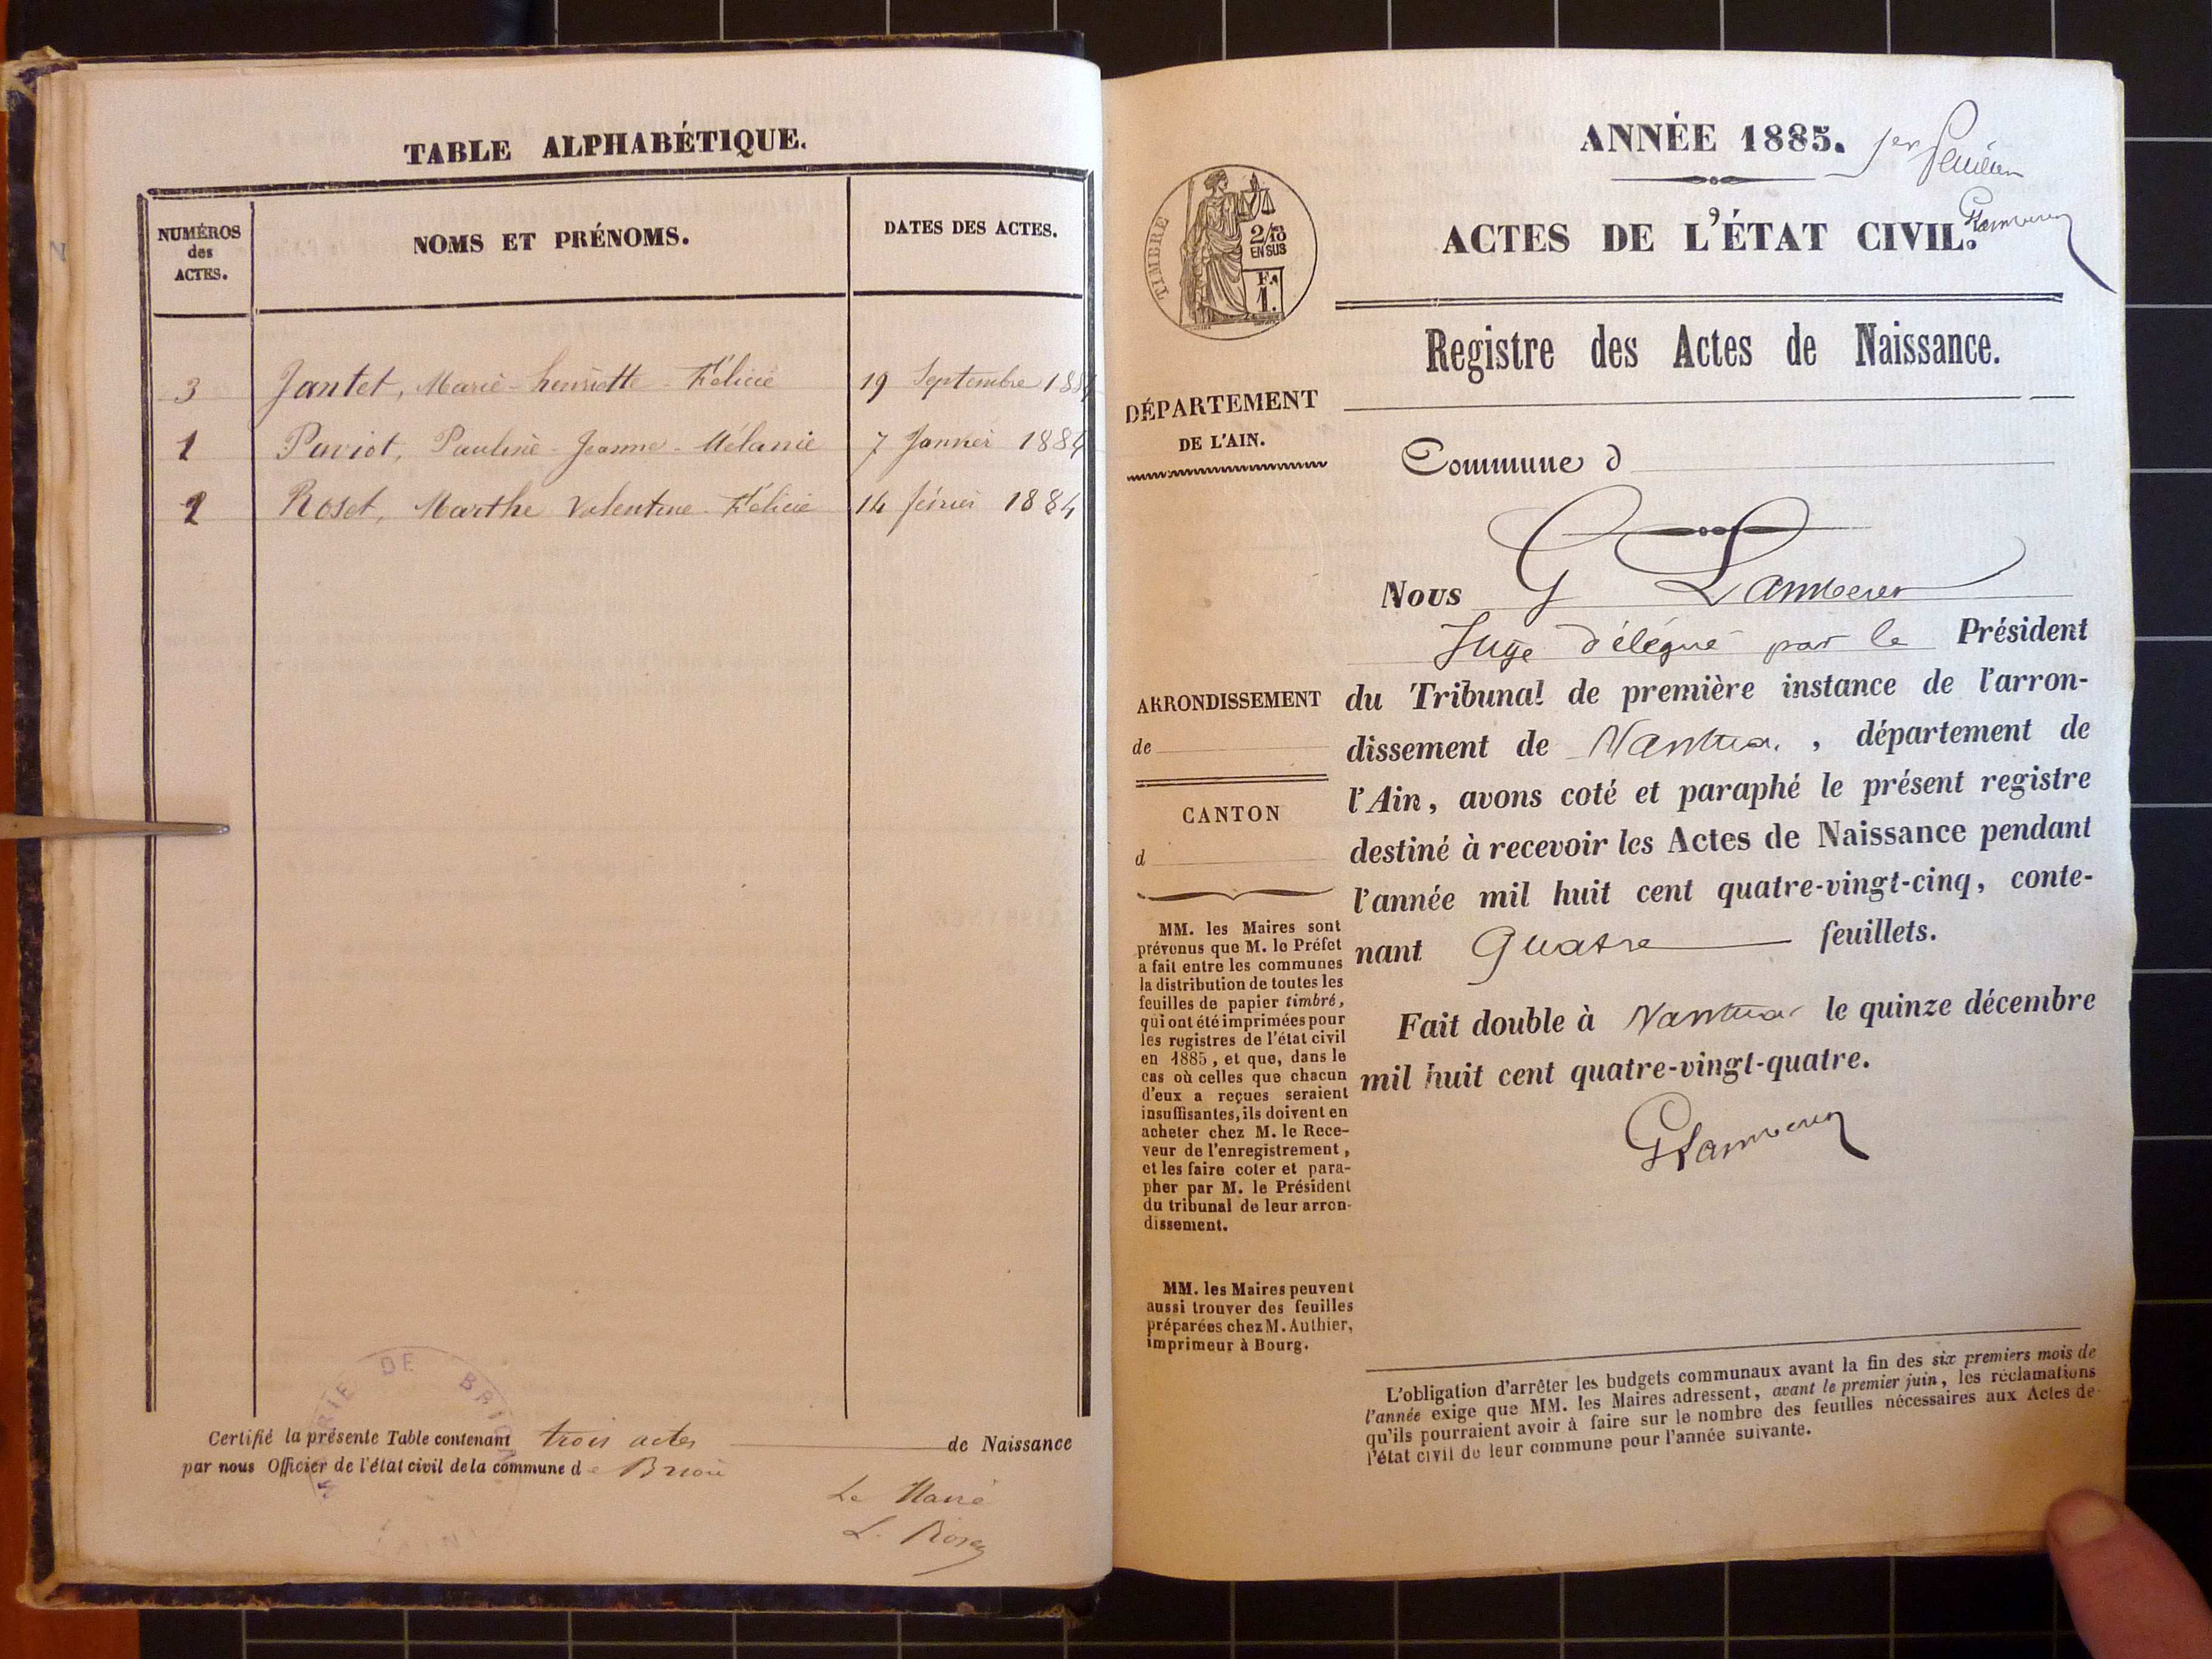 TABLE ALPHABÉTIQUE.
NUMÉROS
des
ACTES.
NOMS ET PRÉNOMS.
DATES DES ACTES.
3 Jantet, Marie-henriette-Félicie 19 Septembre 1884
1 Paviot, Pauline-Jeanne-Mélanie 7 Janvier 1884
2 Roset, Marthe Valentine-Félicie 14 février 1884
Certifié la présente Table contenant trois actes de Naissance
par nous Officier de l'état civil de la commune de Brion
Le Maire
L.
ANNÉE 1885.
1er feuillet
TIMBRE
2/10
EN SUS
F.
1.
ACTES DE L'ÉTAT CIVIL.
Registre des Actes de Naissance.
DÉPARTEMENT
DE L'AIN.
Commune d
Nous G
Juge délégué par le Président
du Tribunal de première instance de l'arron-
dissement de Nantua, département de
l'Ain, avons coté et paraphé le présent registre
destiné à recevoir les Actes de Naissance pendant
l'année mil huit cent quatre-vingt-cinq, conte-
nant Quatre feuillets.
Fait double à Nantua le quinze décembre
mil huit cent quatre-vingt-quatre.
ARRONDISSEMENT
de
CANTON
d
MM. les Maires sont
prévenus que M. le Préfet
a fait entre les communes
la distribution de toutes les
feuilles de papier timbré,
qui ont été imprimées pour
les registres de l'état civil
en 1885, et que, dans le
cas où celles que chacun
d'eux a reçues seraient
insuffisantes, ils doivent en
acheter chez M. le Rece-
veur de l'enregistrement,
et les faire coter et para-
pher par M. le Président
du tribunal de leur arron-
dissement.
MM. les Maires peuvent
aussi trouver des feuilles
préparées chez M. Authier,
imprimeur à Bourg.
L'obligation d'arrêter les budgets communaux avant la fin des six premiers mois de
l'année exige que MM. les Maires adressent, avant le premier juin, les réclamations
qu'ils pourraient avoir à faire sur le nombre des feuilles nécessaires aux Actes de
l'état civil de leur commune pour l'année suivante.